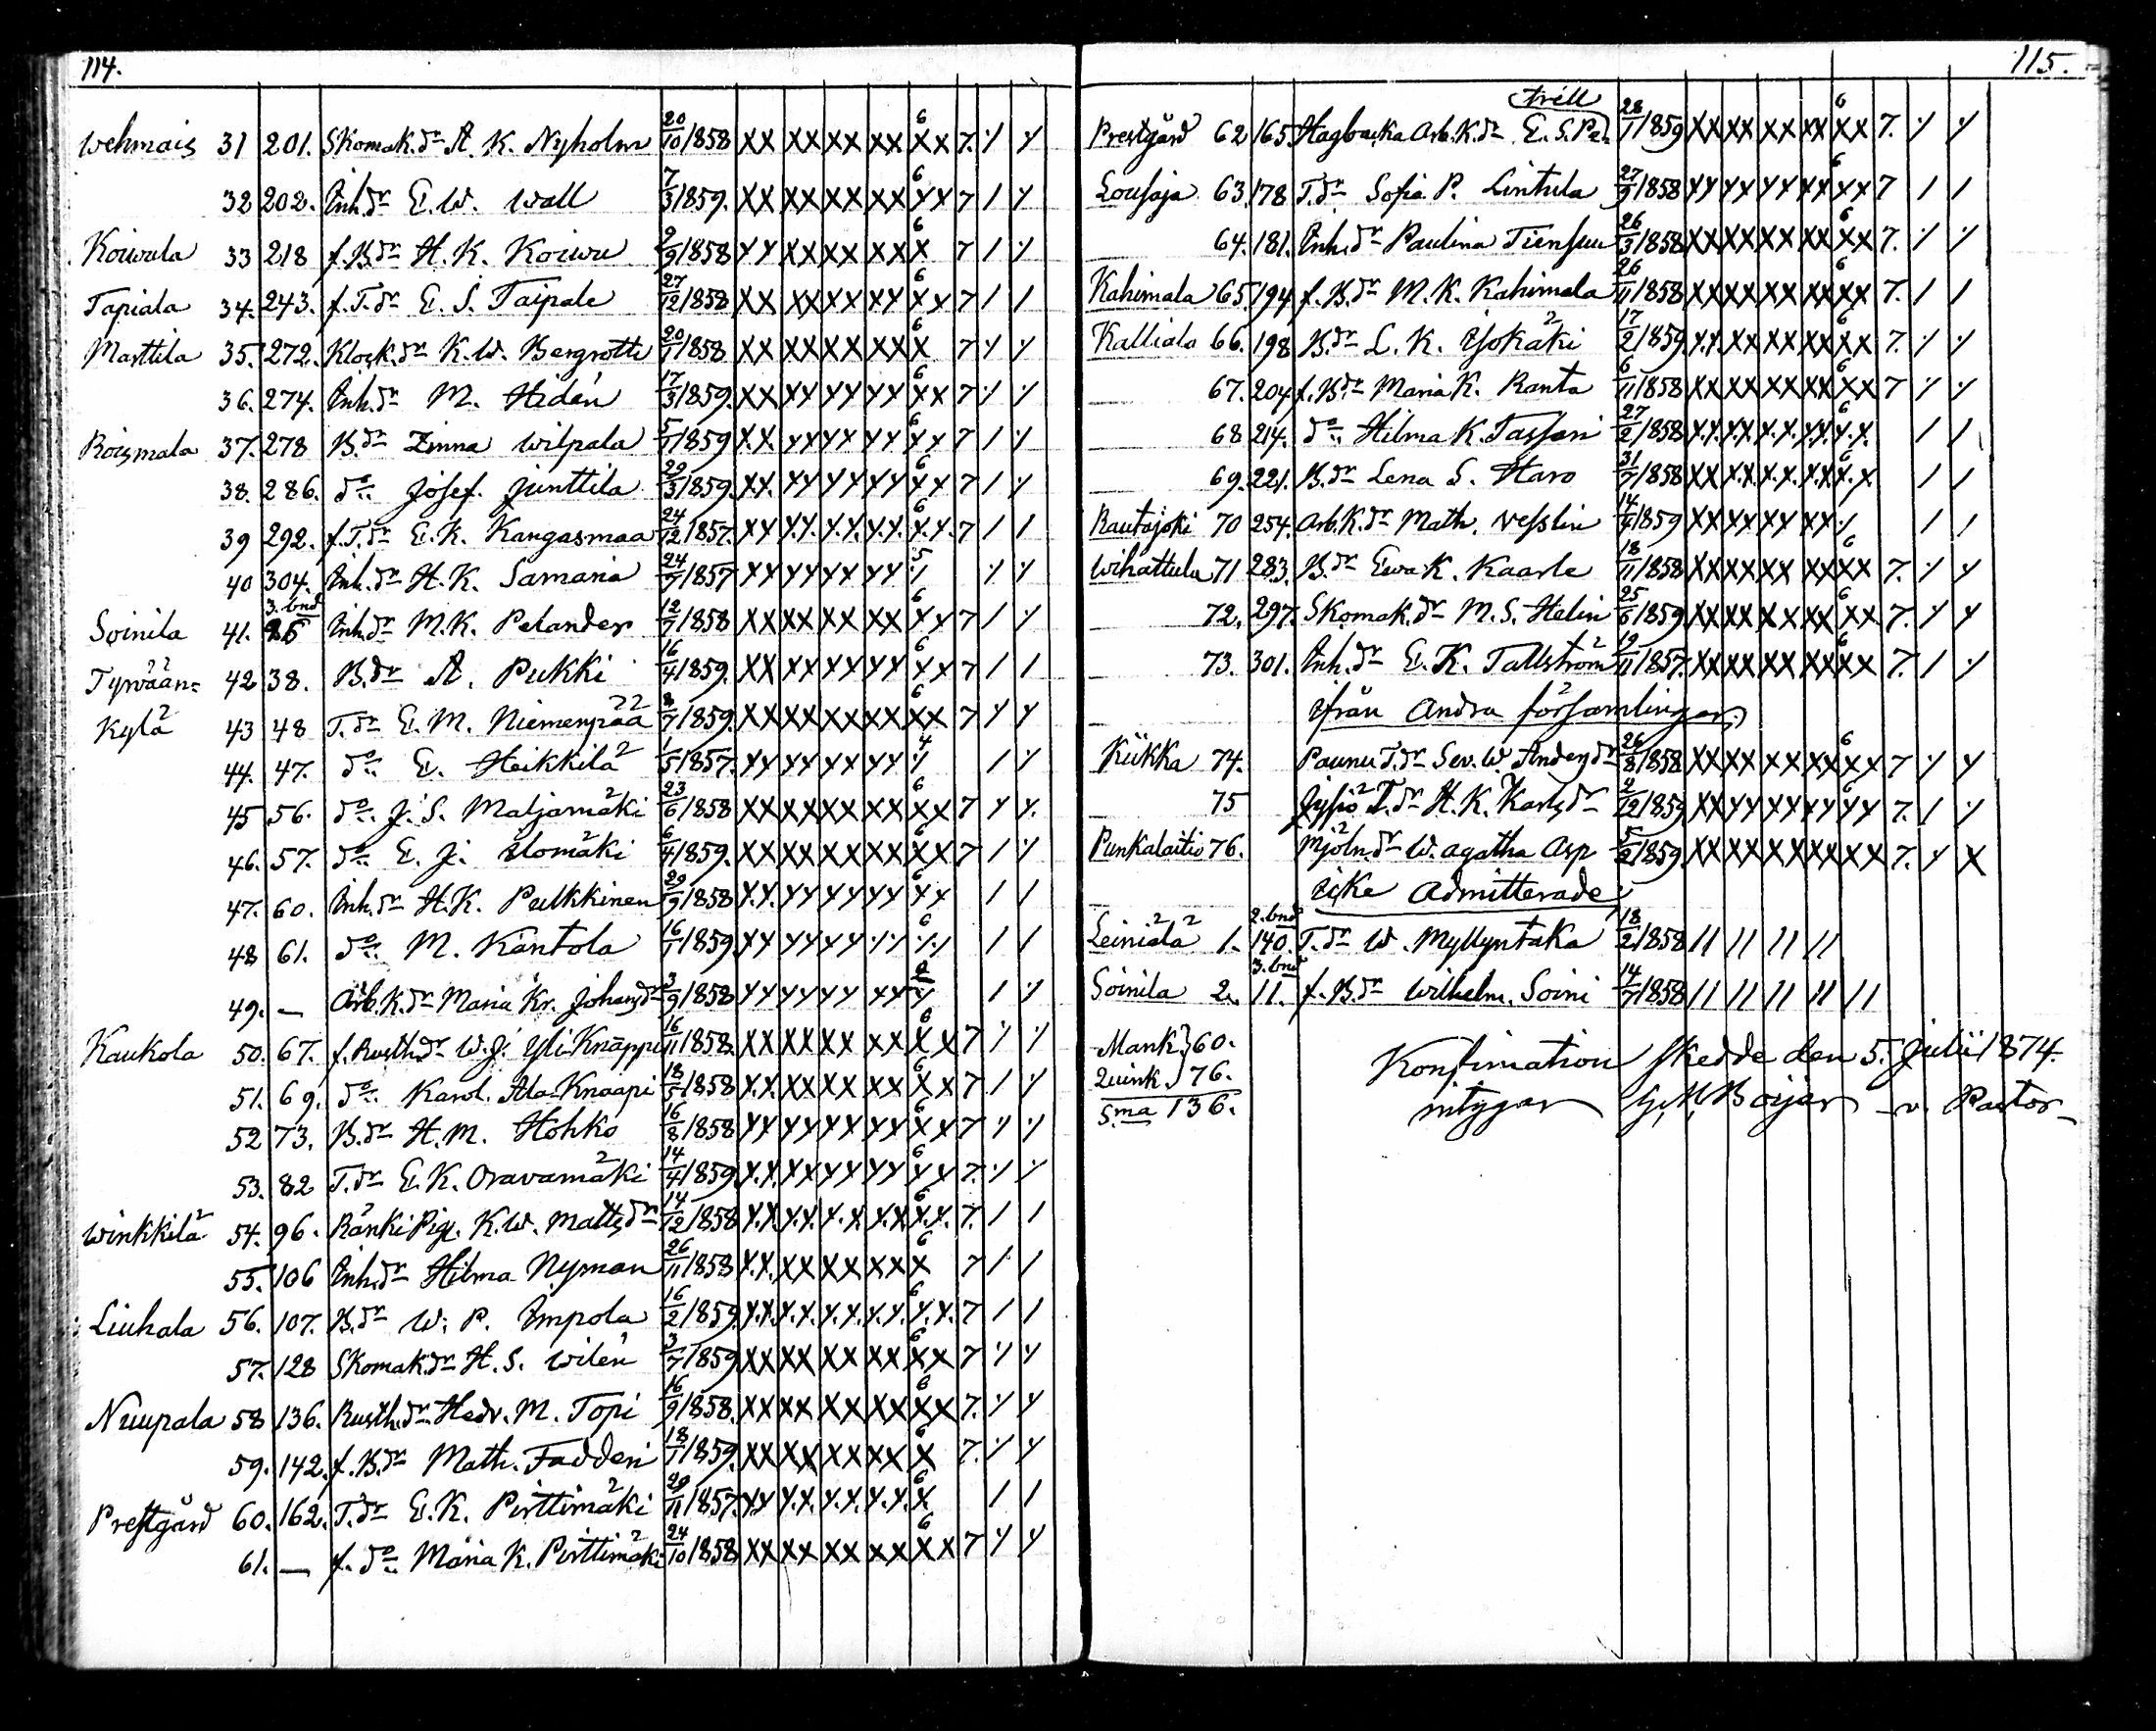 114.
Wehmais 31 201. Skomak. dr A. K. Nyholm 20/10 1858 XX XX XX XX 6 XX 7. ٪ ٪
32 202. Inh. dr E. W. Wall 7/3 1859. XX XX XX XX 6 XX 7 / ٪
Koiwula 33 218 f. B. dr H. K. Koiwu 2/9 1858 XX XX XX XX 6 X 7 / ٪
Tapiala 34. 243. f. T. dr E. S. Taipale 27/12 1858 XX XX XX XX 6 XX 7 / /
Marttila 35. 272. Klock. dr K. W. Bergroth 20/1 1858 XX XX XX XX 6 X 7 ٪ ٪
36. 274. Inh. dr M. Hidén 17/3 1859. XX XX XX XX 6 XX 7 ٪ ٪
Roismala 37. 278 B. dr Zinna Wilpala 5/1 1859 XX XX XX XX 6 XX 7 / ٪
38. 286. do. Josef. Junttila 29/3 1859. XX XX XX XX 6 XX 7 / ٪
39 292. f. T. dr E. K. Kangasmaa 24/12 1857. XX XX XX XX 6 XX 7 / /
40 304. Inh. dr H. K. Samaria 24/7 1857 XX XX XX XX 5 ٪ ٪ ٪
3. bnd
Soinila 41. 25 Inh. dr M. K. Pelander 12/7 1858 XX XX XX XX 6 XX 7 / ٪
Tyrvään= 42 38. B. dr A. Pukki 16/4 1859. XX XX XX XX 6 XX 7 / /
Kylä 43 48 T. dr E. M. Niemenpää 8/7 1859. XX XX XX XX 6 XX 7 ٪ ٪
44. 47. do. E. Heikkilä 1/5 1857. XX XX XX XX 4 ٪ / ٪
45 56. do. J. S. Maljamäki 23/6 1858 XX XX XX XX 6 XX 7 ٪ ٪
46. 57. do. E. J. Ilomäki 6/4 1859. XX XX XX XX 6 XX 7 / ٪
47. 60. Inh. dr H. K. Pulkkinen 29/9 1858 XX XX XX XX 6 XX / /
48 61. do. M. Käntola 16/1 1859. XX XX XX ٪٪ 6 ٪٪ / /
49. — Arb. K. dr Maria Kr. Johans dr 3/9 1858 XX XX XX XX ٪ / ٪
Kaukola 50. 67. f. Rusth. dr W. J. Yli-Knäppi 16/11 1858. XX XX XX XX 6 XX 7 ٪ ٪
51. 69. do. Karol. Ala-Knaapi 18/5 1858 XX XX XX XX 6 XX 7 / ٪
52 73. B. dr H. M. Hohko 16/8 1858 XX XX XX XX 6 XX 7 ٪ ٪
53. 82 T. dr E. K. Oravamäki 14/4 1859 XX XX XX XX 6 XX 7. ٪ ٪
Winkkilä 54. 96. Ränki Pig. K. W. Matts dr 14/12 1858 XX XX XX XX 6 XX 7. / /
55. 106 Inh. dr Hilma Nyman 26/11 1858 XX XX XX XX 6 X 7 / /
Liuhala 56. 107. B. dr W. P. Impola 16/2 1859. XX XX XX XX 6 XX 7 / /
57. 128 Skomak. dr H. S. Wilén 3/7 1859 XX XX XX XX 6 XX 7 ٪ ٪
Nuupala 58 136. Rusth. dr Hedv. M. Topi 16/9 1858. XX XX XX XX 6 XX 7. ٪ ٪
59. 142. f. B. dr Math. Fadderi 18/1 1859. XX XX XX XX 6 X 7. ٪ ٪
Prestgård 60. 162. T. dr E. K. Pirttimäki 29/11 1857. XX XX XX XX 6 X / /
61. — f. do. Maria K. Pirttimäki 24/10 1858 XX XX XX XX 6 XX 7 ٪ ٪
115.
trill
Prestgård 62 165. Hagbacka Arb. K. dr E. S. Pel. 28/1 1859 XX XX XX XX 6 XX 7. ٪ ٪
Lousaja 63. 178 T. dr Sofia P. Lintula 27/9 1858 XX XX XX XX 6 XX 7 / /
64. 181. Inh. dr Paulina Tiensuu 26/3 1858 XX XX XX XX 6 XX 7. ٪ ٪
Kahimala 65 194 f. B. dr M. K. Kahimala 26/11 1858 XX XX XX XX 6 XX 7. / /
Kalliala 66. 198 B. dr L. K. Isokäki 17/2 1859 XX XX XX XX 6 XX 7. ٪ ٪
67. 204 f. B. dr Maria K. Ranta 6/11 1858 XX XX XX XX 6 XX 7 ٪ ٪
68 214. do. Hilma K. Tassari 27/2 1858 XX XX XX XX 6 XX / /
69. 221. B. dr Lena S. Haro 31/7 1858 XX XX XX XX 6 XX / /
Rautajoki 70 254. Arb. K. dr Math. Vesslin 14/4 1859 XX XX XX XX ٪ / /
Wihattula 71 283. B. dr Ewa K. Kaarle 18/11 1858 XX XX XX XX 6 XX 7. ٪ ٪
72. 297. Skomak. dr M. S. Helin 25/6 1859 XX XX XX XX 6 XX 7. ٪ ٪
73. 301. Inh. dr E. K. Tallström 19/11 1857. XX XX XX XX 6 XX 7. / ٪
ifrån Andra församlingar.
Kiikka 74. Paunu T. dr Sev. W. Anders dr 26/8 1858 XX XX XX XX 6 XX 7 ٪ ٪
75 Jyssö T. dr H. K. Karls dr 2/12 1859 XX XX XX XX 6 XX 7. / ٪
Punkalaitio 76. Mjöln. dr W. Agatha Asp 5/2 1859. XX XX XX XX XX 7. ٪ X
icke Admitterade
2. bnd
Leiniälä 1. 140. T. dr W. Myllyntaka 18/2 1858 // // // //
3. bnd
Soinila 2. 11. f. B. dr Wilhelm. Soini 14/7 1858 // // // // //
Mank. } 60.
Quink. } 76.
Sma 136.
Konfirmation skedde den 5. Julii 1874.
intygar G. M. Boijer v. Pastor